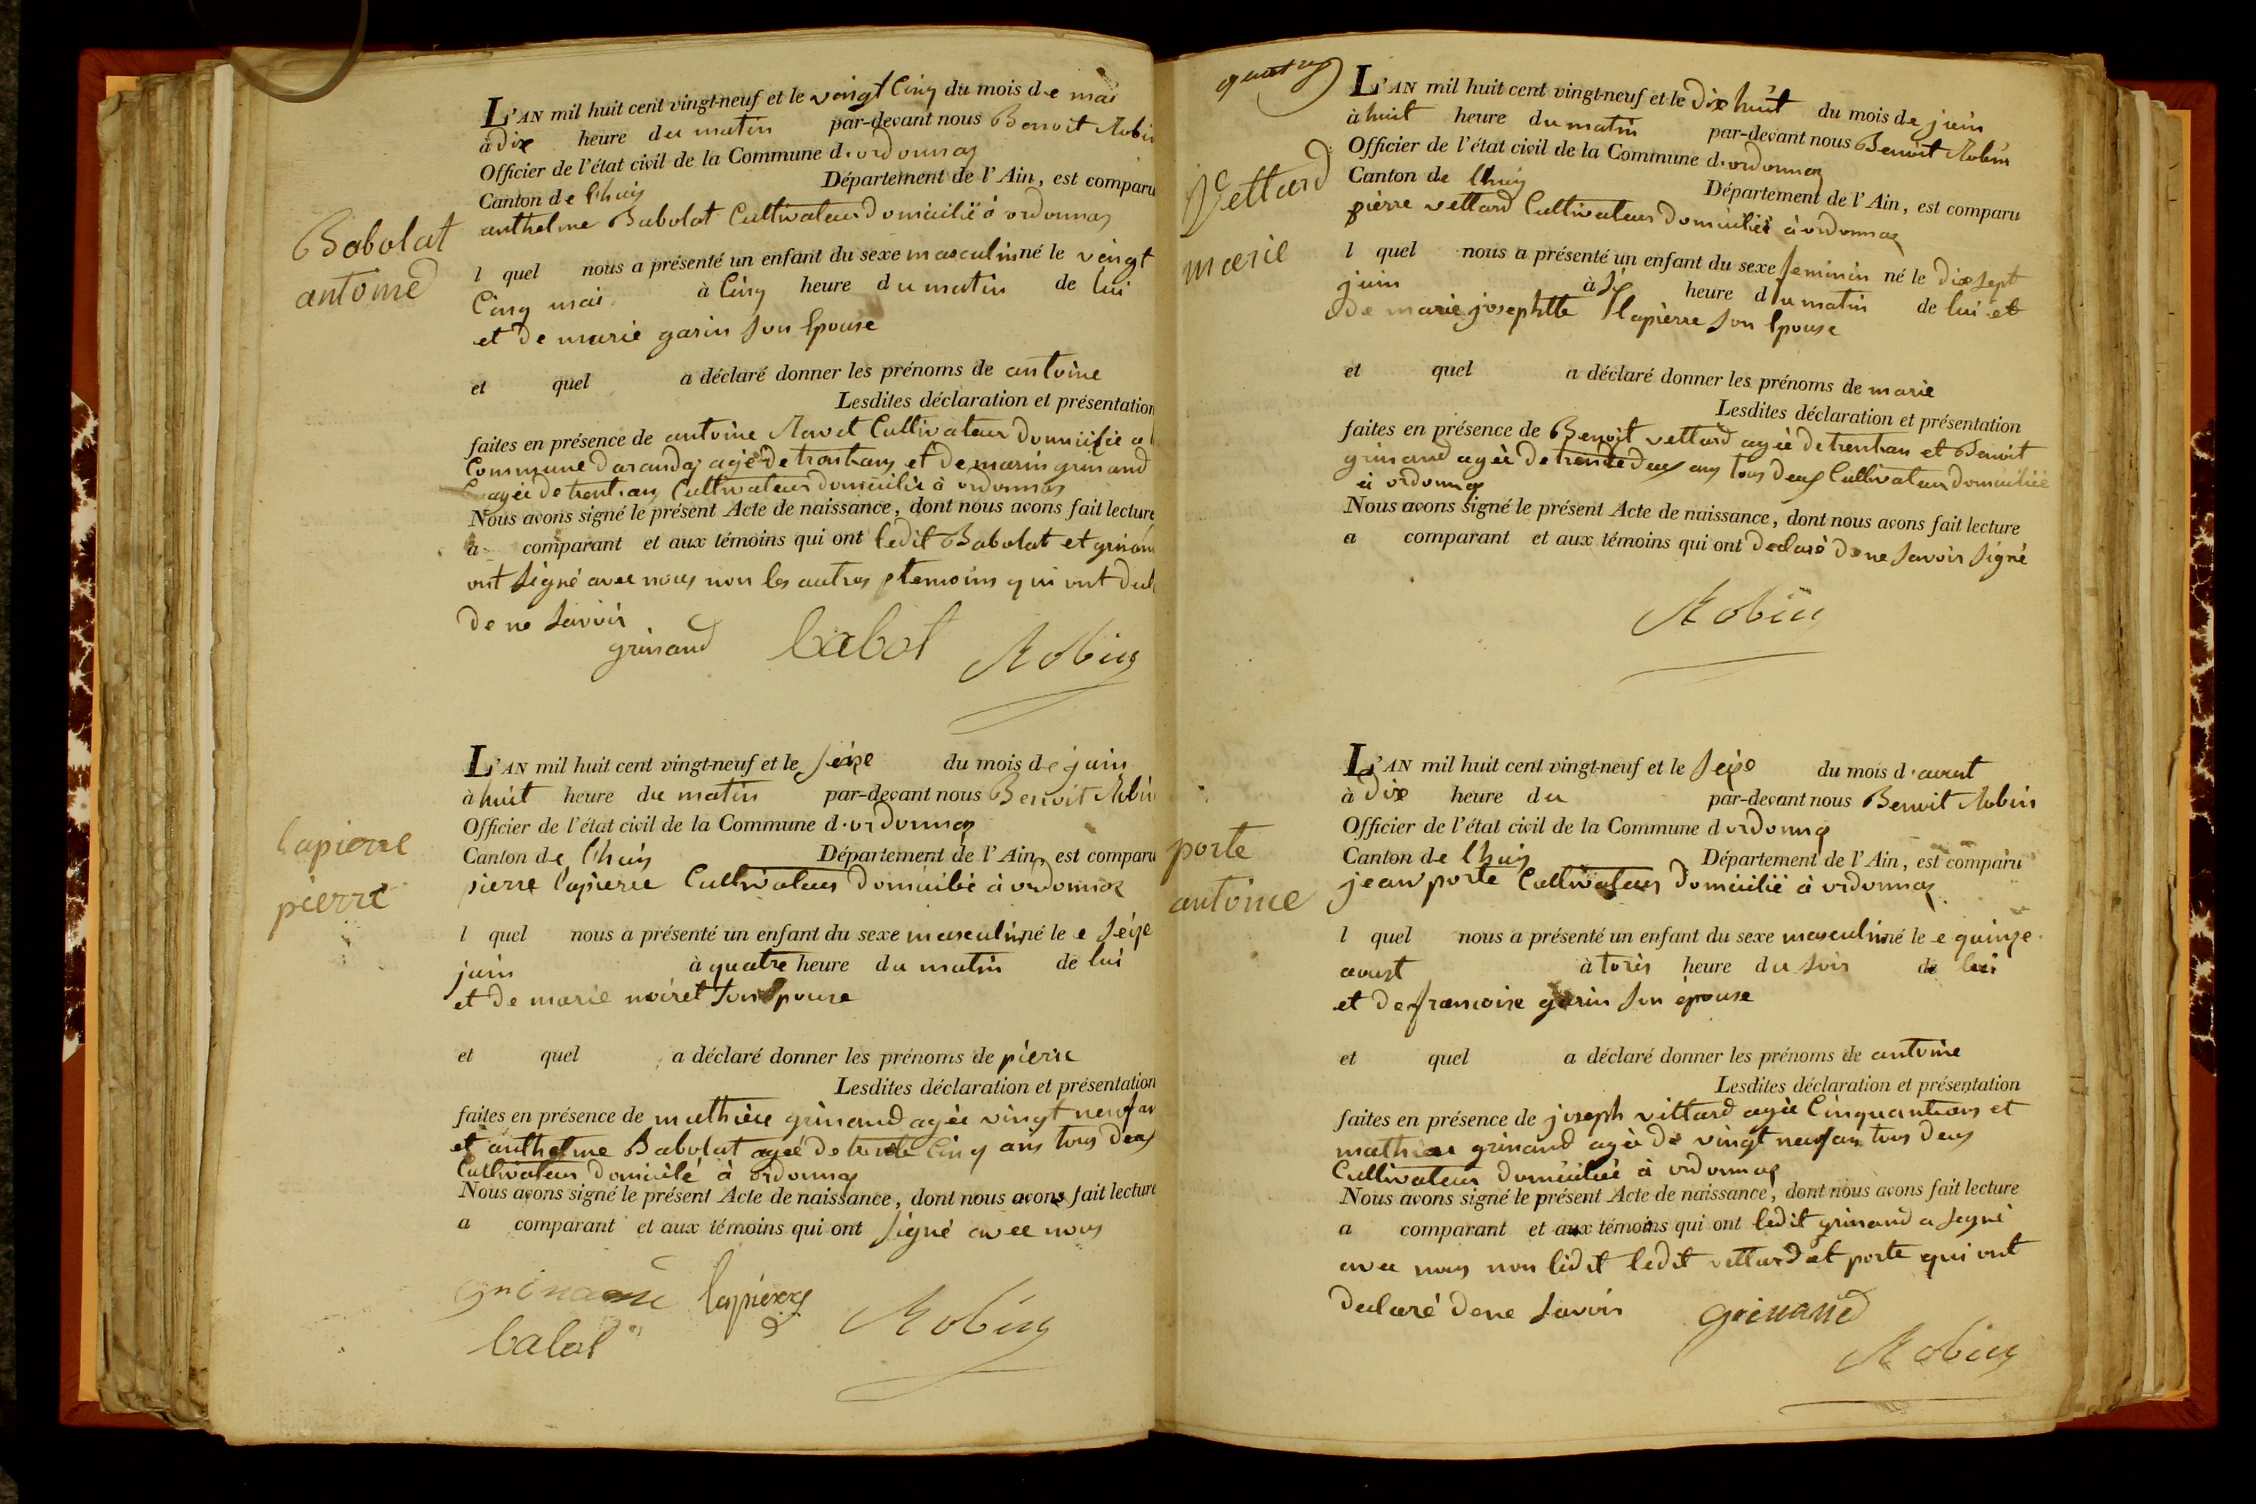 Babolat
antoine
L'AN mil huit cent vingt-neuf et le vingt Cinq du mois de mai
à dix heure du matin par-devant nous Benoit Robin
Officier de l'état civil de la Commune d'ordonnas
Canton de l'huis Département de l'Ain, est comparu
anthelme Babolat Cultivateur domicilié à ordonnas
l quel nous a présenté un enfant du sexe masculin né le vingt
Cinq mai à Cinq heure du matin de lui
et de marie garin son Epouse
et quel a déclaré donner les prénoms de antoine
Lesdites déclaration et présentation
faites en présence de antoine Cultivateur domicilié a
Commune d'arandas agé de trent ans et de marin grinand
agéé de trent ans Cultivateur domicilié à ordonnas
Nous avons signé le présent Acte de naissance, dont nous avons fait lecture
a comparant et aux témoins qui ont ledit Babolat et grinan
ont signé avec nous non les autres temoins qui ont decl
de ne savoir
grinand babol Robin
lapierre
pierre
L'AN mil huit cent vingt-neuf et le seize du mois de juin
à huit heure du matin par-devant nous Benoit Robin
Officier de l'état civil de la Commune d'ordonnas
Canton de l'huis Département de l'Ain, est comparu
pierre lapierre Cultivateur domicilié à ordonnas
l quel nous a présenté un enfant du sexe masculin né le e seize
juin à quatre heure du matin de lui
et de marie noiret son Epouse
et quel a déclaré donner les prénoms de pierre
Lesdites déclaration et présentation
faites en présence de mathieu grinand agée vingt neuf an
et anthelme Babolat agéé de trente Cinq ans tous deux
Cultivateur domicilé à ordonnas
Nous avons signé le présent Acte de naissance, dont nous avons fait lecture
a comparant et aux témoins qui ont signé avec nous
grinand lapierre Robin
babol
Vettard
marie
L'AN mil huit cent vingt-neuf et le dix huit du mois de juin
à huit heure du matin par-devant nous Benoit Robin
Officier de l'état civil de la Commune d'ordonnas
Canton de lhuis Département de l'Ain, est comparu
pierre vettard Cultivateur domicilié à ordonnas
l quel nous a présenté un enfant du sexe feminin né le dix sept
juin à six heure du matin de lui et
de marie josephtte lapierre son Epouse
et quel a déclaré donner les prénoms de marie
Lesdites déclaration et présentation
faites en présence de Benoit vettard agéé de trentran et Benoit
grinand agéé de trente deux ans tous deux Cultivateur domicilié
à ordonnas
Nous avons signé le présent Acte de naissance, dont nous avons fait lecture
a comparant et aux témoins qui ont declaré de ne savoir signé
Robin
porte
antoine
L'AN mil huit cent vingt-neuf et le seize du mois d'aoust
à dix heure du par-devant nous Benoit Robin
Officier de l'état civil de la Commune d ordonnas
Canton de lhuis Département de l'Ain, est comparu
jean porte Cultivateur domicilié à ordonnas
l quel nous a présenté un enfant du sexe masculin né le e quinze
aoust à torés heure du soir de lui
et de francoise garin son épouse
et quel a déclaré donner les prénoms de antoine
Lesdites déclaration et présentation
faites en présence de joseph vittard agéé Cinquantrans et
mathieu grinand agéé de vingt neuf ans tous deux
Cultivateur domicilié à ordonnas
Nous avons signé le présent Acte de naissance, dont nous avons fait lecture
a comparant et aux témoins qui ont ledit grinand a segné
avec nous non lédit ledit vettard et porte qui ont
declaré de ne savoir grinand
Robin